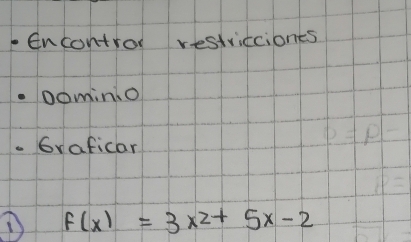 • Encontrar restricciones
• Dominio
• Graficar
① f(x) = 3x2+ 5x-2